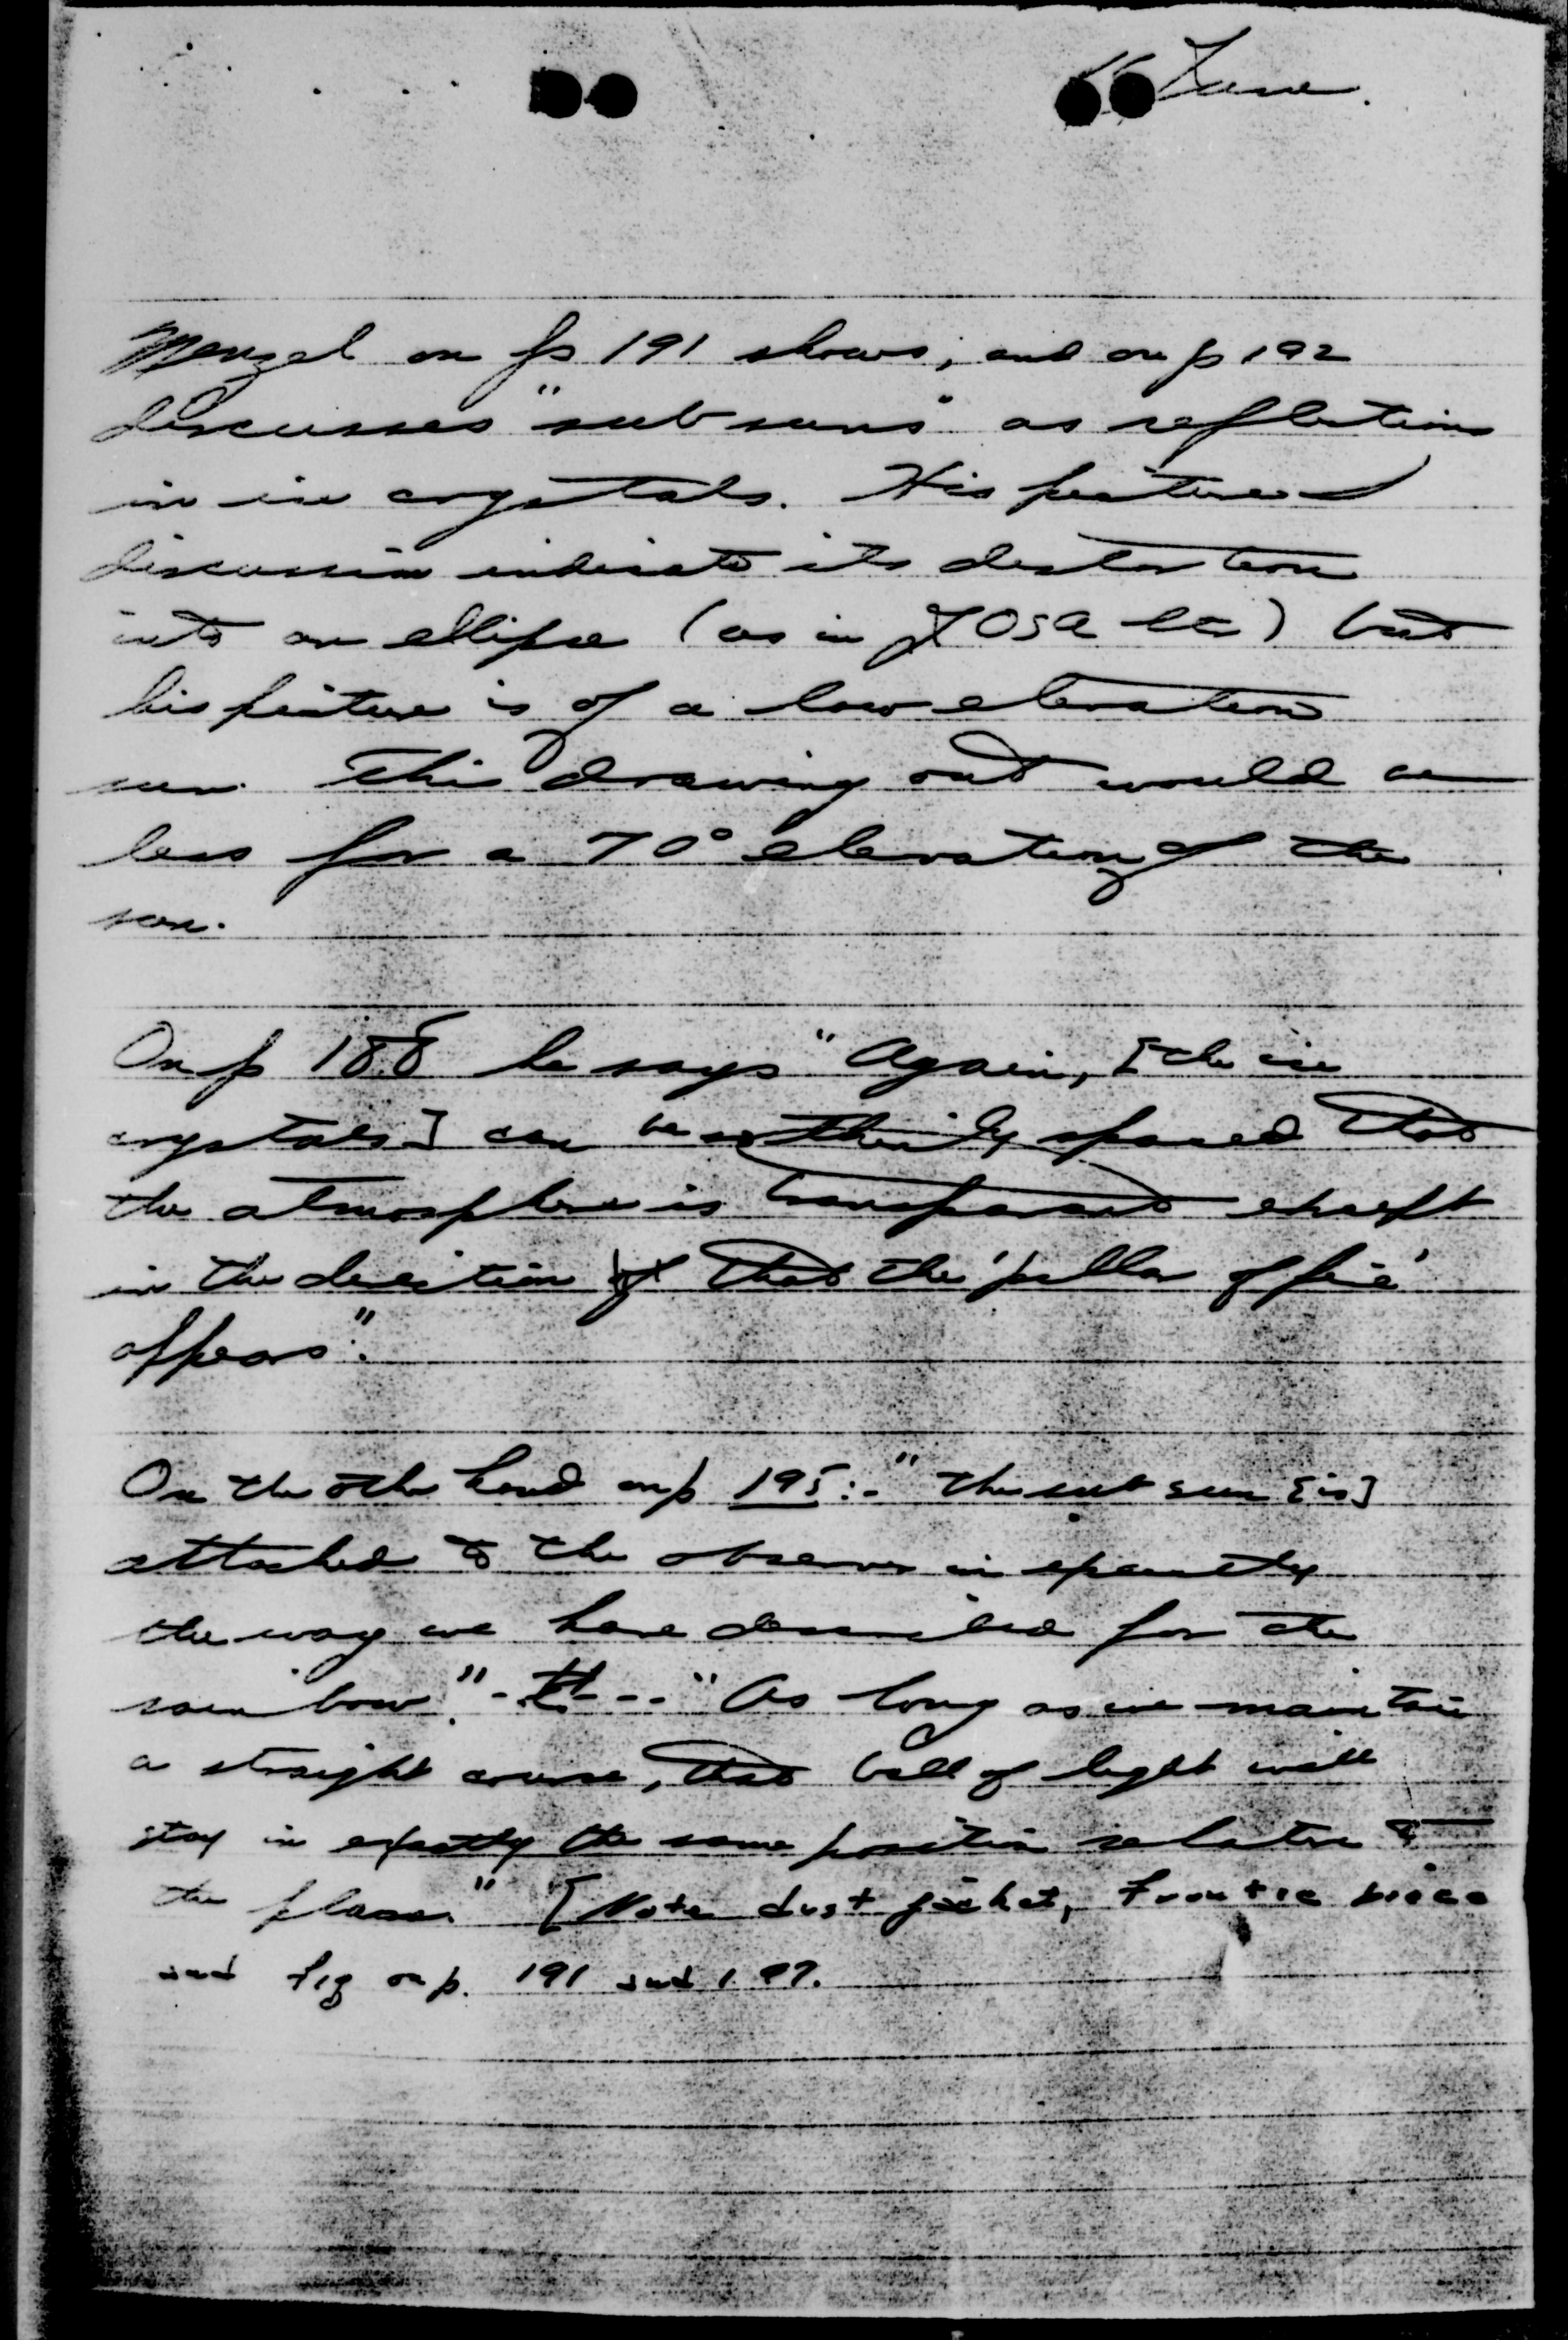 June.
Menzel on p 191 shows, and on p 192
discusses "sub suns" as reflections
in ice crystals. His picture &
discussion indicate its distortion
into an ellipse (as in JOSA ) but
his picture is of a low elevation
sun. This drawing out would be
less for a 70° elevation of the
sun.
On p 188 he says "Again, [the ice
crystals] can be so thinly spaced that
the atmosphere is transparent except
in the direction of that the 'pillar of fire'
appears".
On the other hand on p 195:- "the sub sun [is]
attached to the observer in exactly
the way we have described for the
rainbow." - - - - "As long as we maintain
a straight course, that ball of light will
stay in exactly the same position relative to
the plane." [Note dust jacket, Frontispiece
and fig on p. 191 and 197.